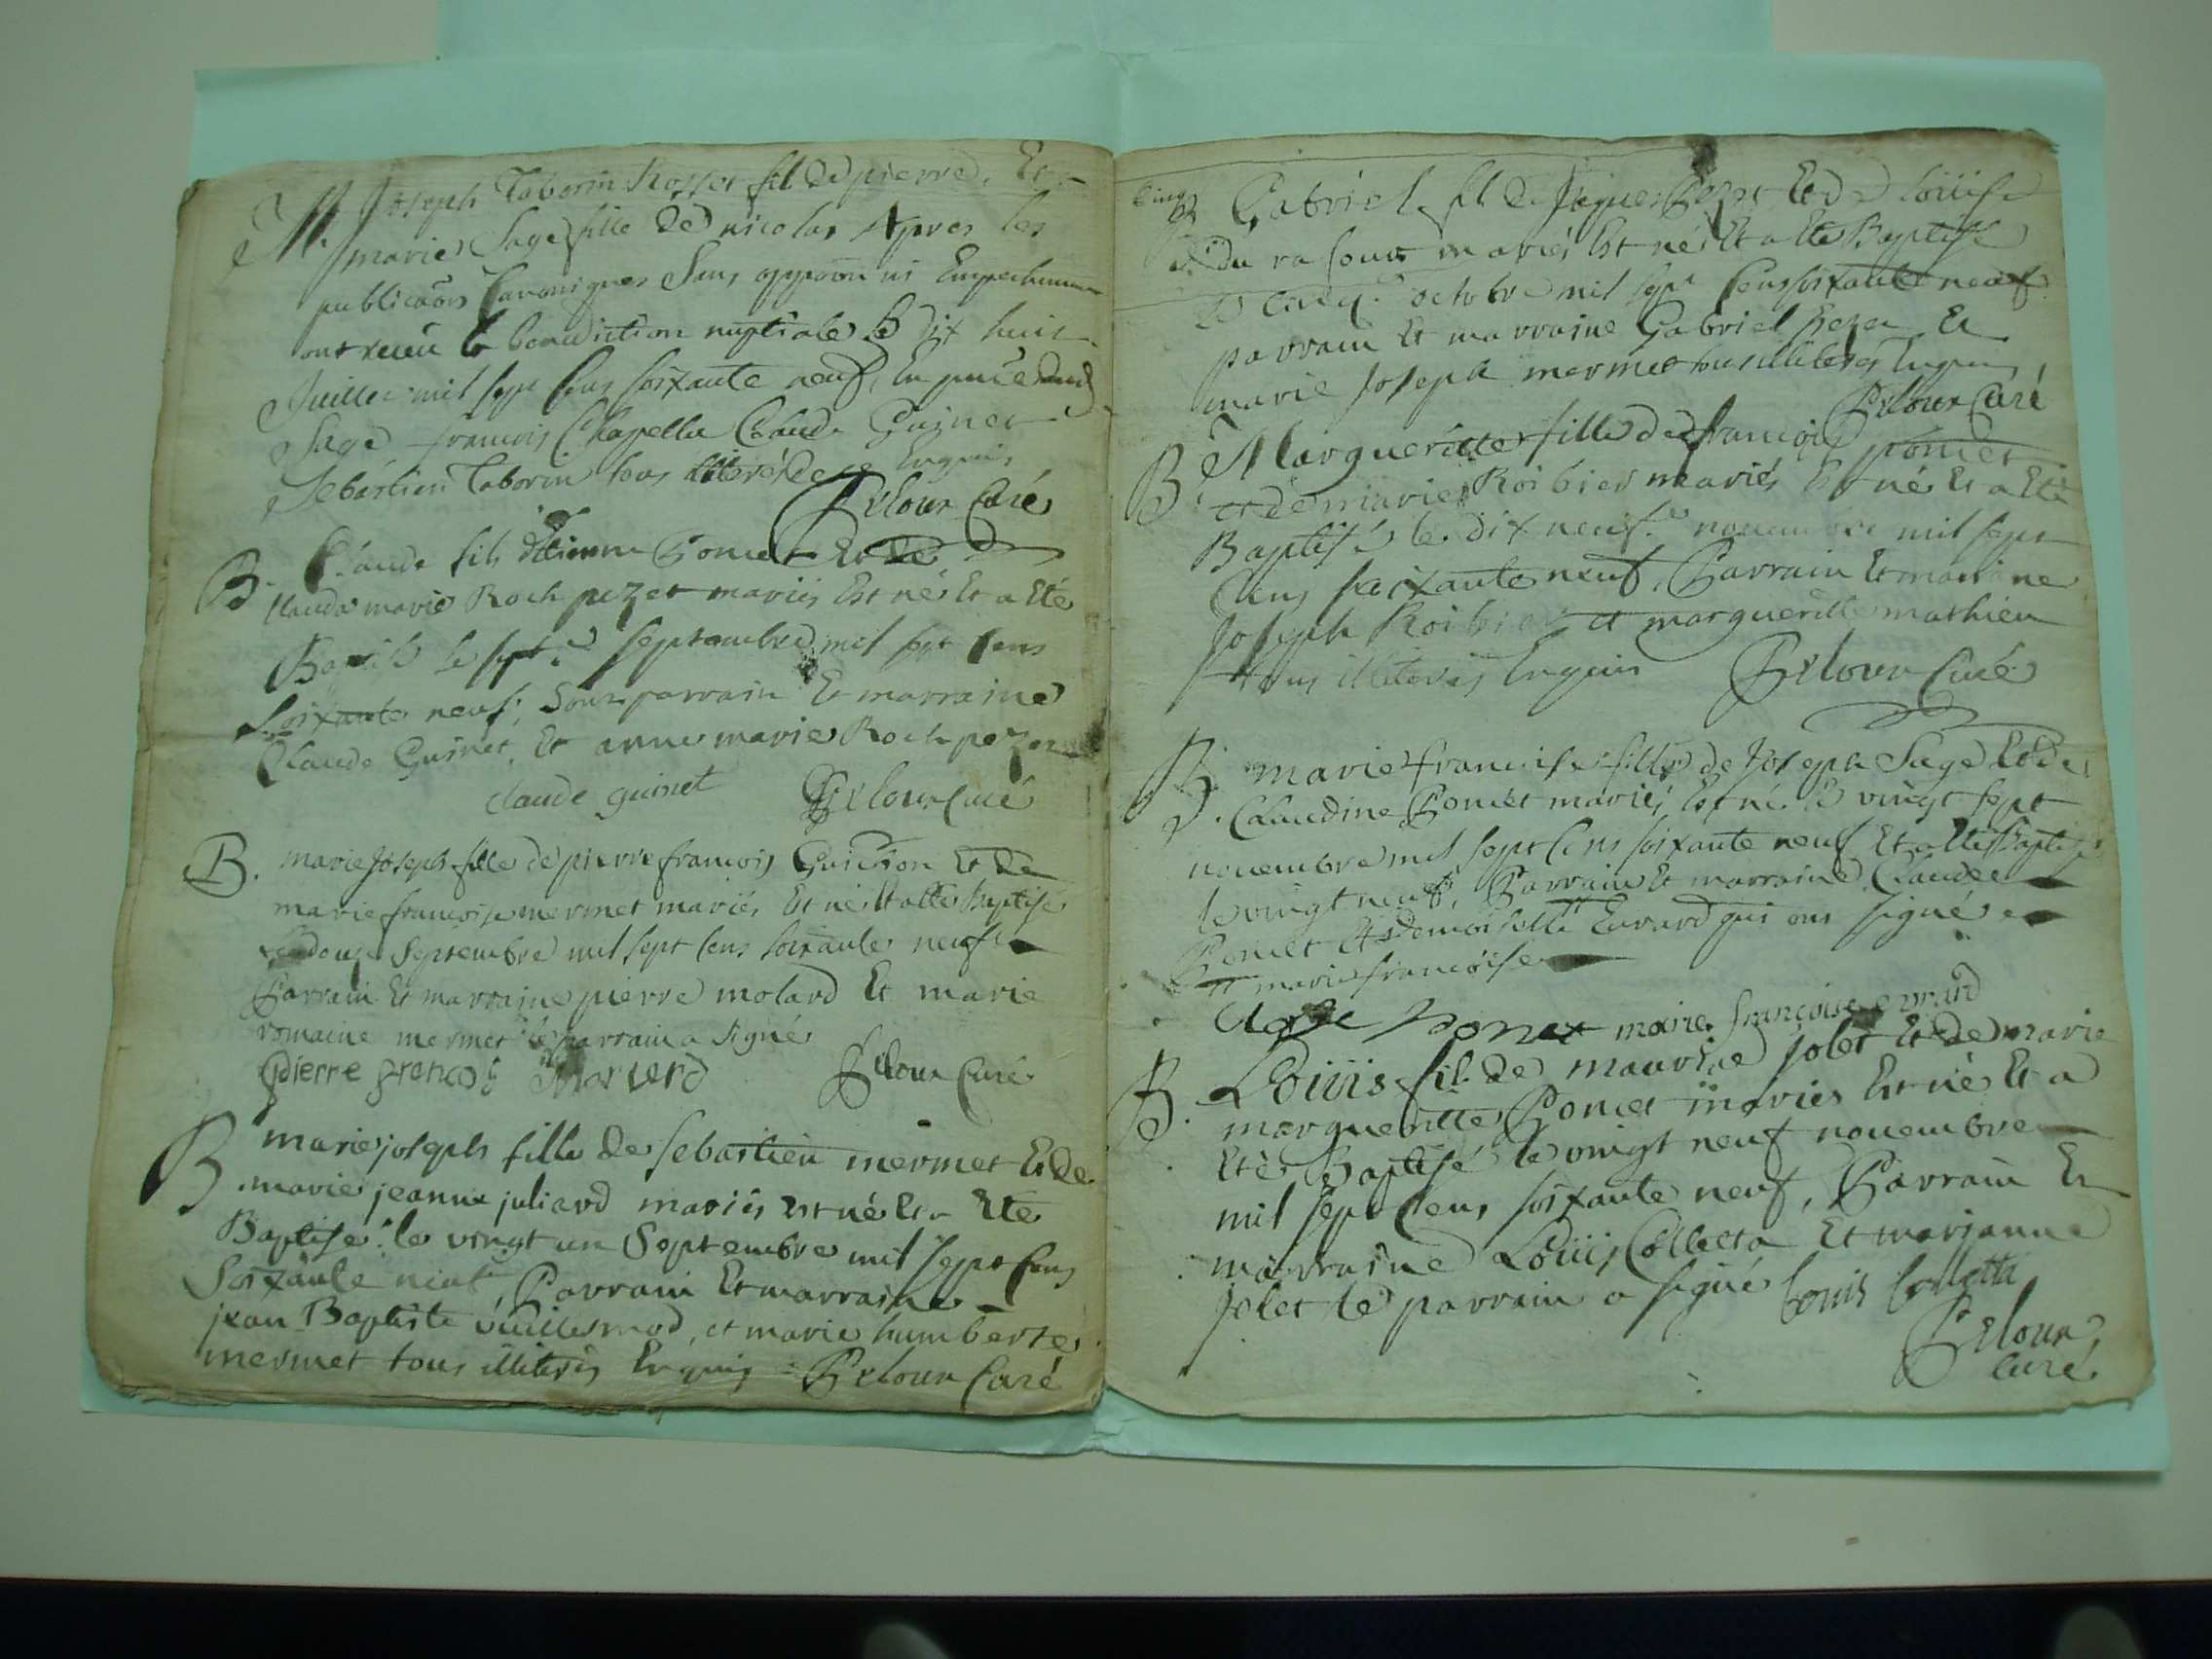 M. Joseph Taborin Rosset fil de pierre, Et
marie Sage fille de nicolas Apres les
publicaõns Canoniques Sans oppoõn ni Empechemen
ont receu la benediction nuptiale le dix huit
Juillet mil sept Cens soixante neuf, En pnce
Sage françois Chapellu Claude Guinet
Sebastien Taborin tous Enquis
Peloux Curé
B. Claude fils d'Etienne Poncet Et de
Claude marie Roch pezet mariés Est né Et a Eté
Baptisé le sept.e septembre mil sept Cens
Soixante neuf, Sous parrain Et marraine
Claude Guinet, Et anne marie Roch pezet
claude guinet Peloux Curé
B. marie Joseph fille de pierre françois Guichon Et de
marie françoise mermet mariés Et né Et a Eté Baptisé
Le douze Septembre mil sept Cens soixante neuf
Parrain Et marraine pierre molard Et marie
romaine mermet le parrain a signé
pierre Peloux Curé
B marie joseph fille de sebastien mermet Et de
marie jeanne juliard mariés Est né Et a Eté
Baptisé le vingt un Septembre mil sept Cens
Soixante neuf, Parrain Et marraine
jean Baptiste vuillermod, et marie humberte
mermet tous illiterés Enquis Peloux Curé
B Gabriel fil de Jaques pezet Et de Loüise
mariés Est né Et a Eté Baptisé
Le octobre mil sept Cens soixante neuf
parrain Et marraine Gabriel pezet Et
marie Joseph mermet tous illiterés Enquis
Peloux Curé
B. Margueritte fille de françois poncet
et de marie Roibier mariés Est né Et a Eté
Baptisé le dix neuf.e nouembre mil sept
Cens soixante neuf, Parrain Et marraine
Joseph Roibier et margueritte mathieu
tous illiterés Enquis Peloux Curé
B. marie françoise fille de Joseph Sage Et de
Claudine Poncet mariés, Est né le vingt sept
nouembre mil sept Cens soixante neuf Et a Eté Baptisé
le vingt neuf, Parrain Et marraine Claude
Poncet Et demoiselle Euvard qui ont signé
et marie françoise
Clode ponet marie françoise evrard
B. Loüis fil de maurice jolet Et de marie
margueritte Poncet mariés Est né Et a
Eté Baptisé le vingt neuf nouembre
mil sept Cens soixante neuf, Parrain Et
marraine Loüis Colletta Et marianne
jolet le parrain a signé Louis Colletta
Peloux
Curé